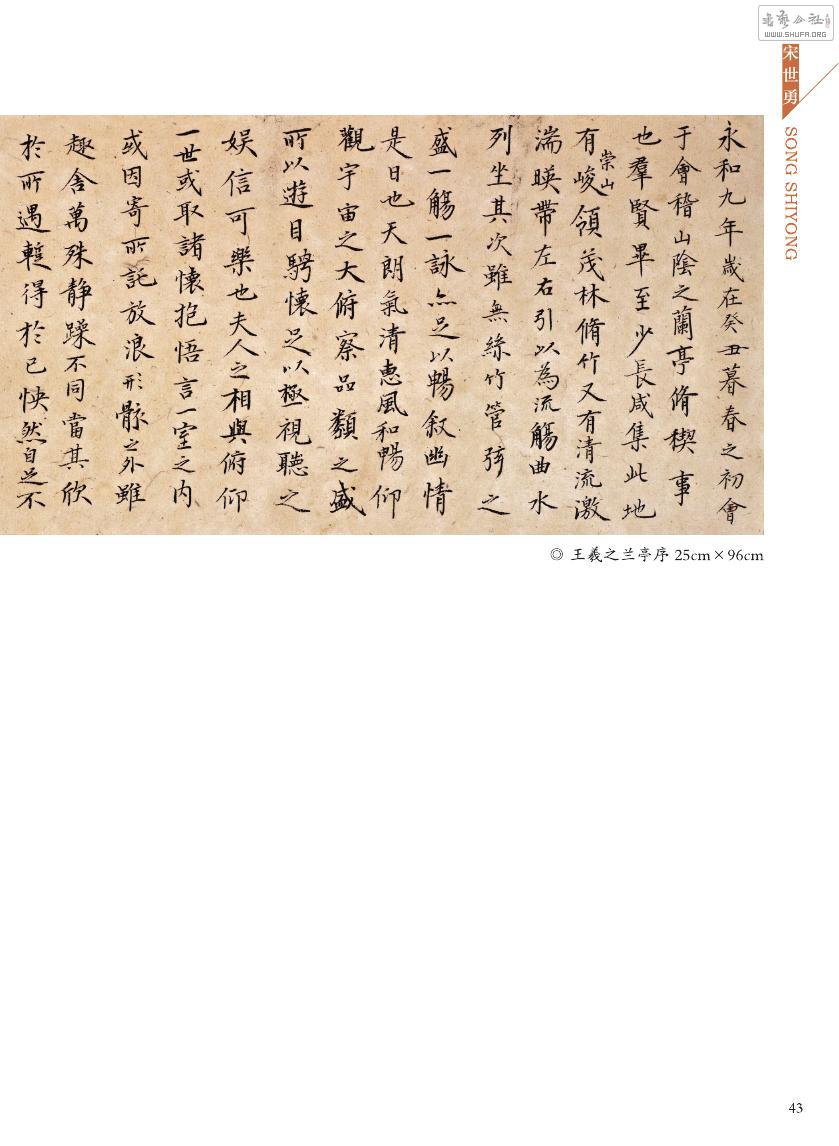 書藝公社
WWW.SHUFA.ORG
宋世勇
SONG SHIYONG
永和九年歲在癸丑暮春之初會
于會稽山陰之蘭亭脩稧事
也羣賢畢至少長咸集此地
有崇山峻領茂林脩竹又有清流激
湍暎帶左右引以為流觴曲水
列坐其次雖無絲竹管弦之
盛一觴一詠亦足以暢叙幽情
是日也天朗氣清惠風和暢仰
觀宇宙之大俯察品類之盛
所以遊目騁懷足以極視聽之
娱信可樂也夫人之相與俯仰
一世或取諸懷抱悟言一室之内
或因寄所託放浪形骸之外雖
趣舎萬殊静躁不同當其欣
於所遇蹔得於己怏然自足不
◎ 王羲之兰亭序 25cm×96cm
43